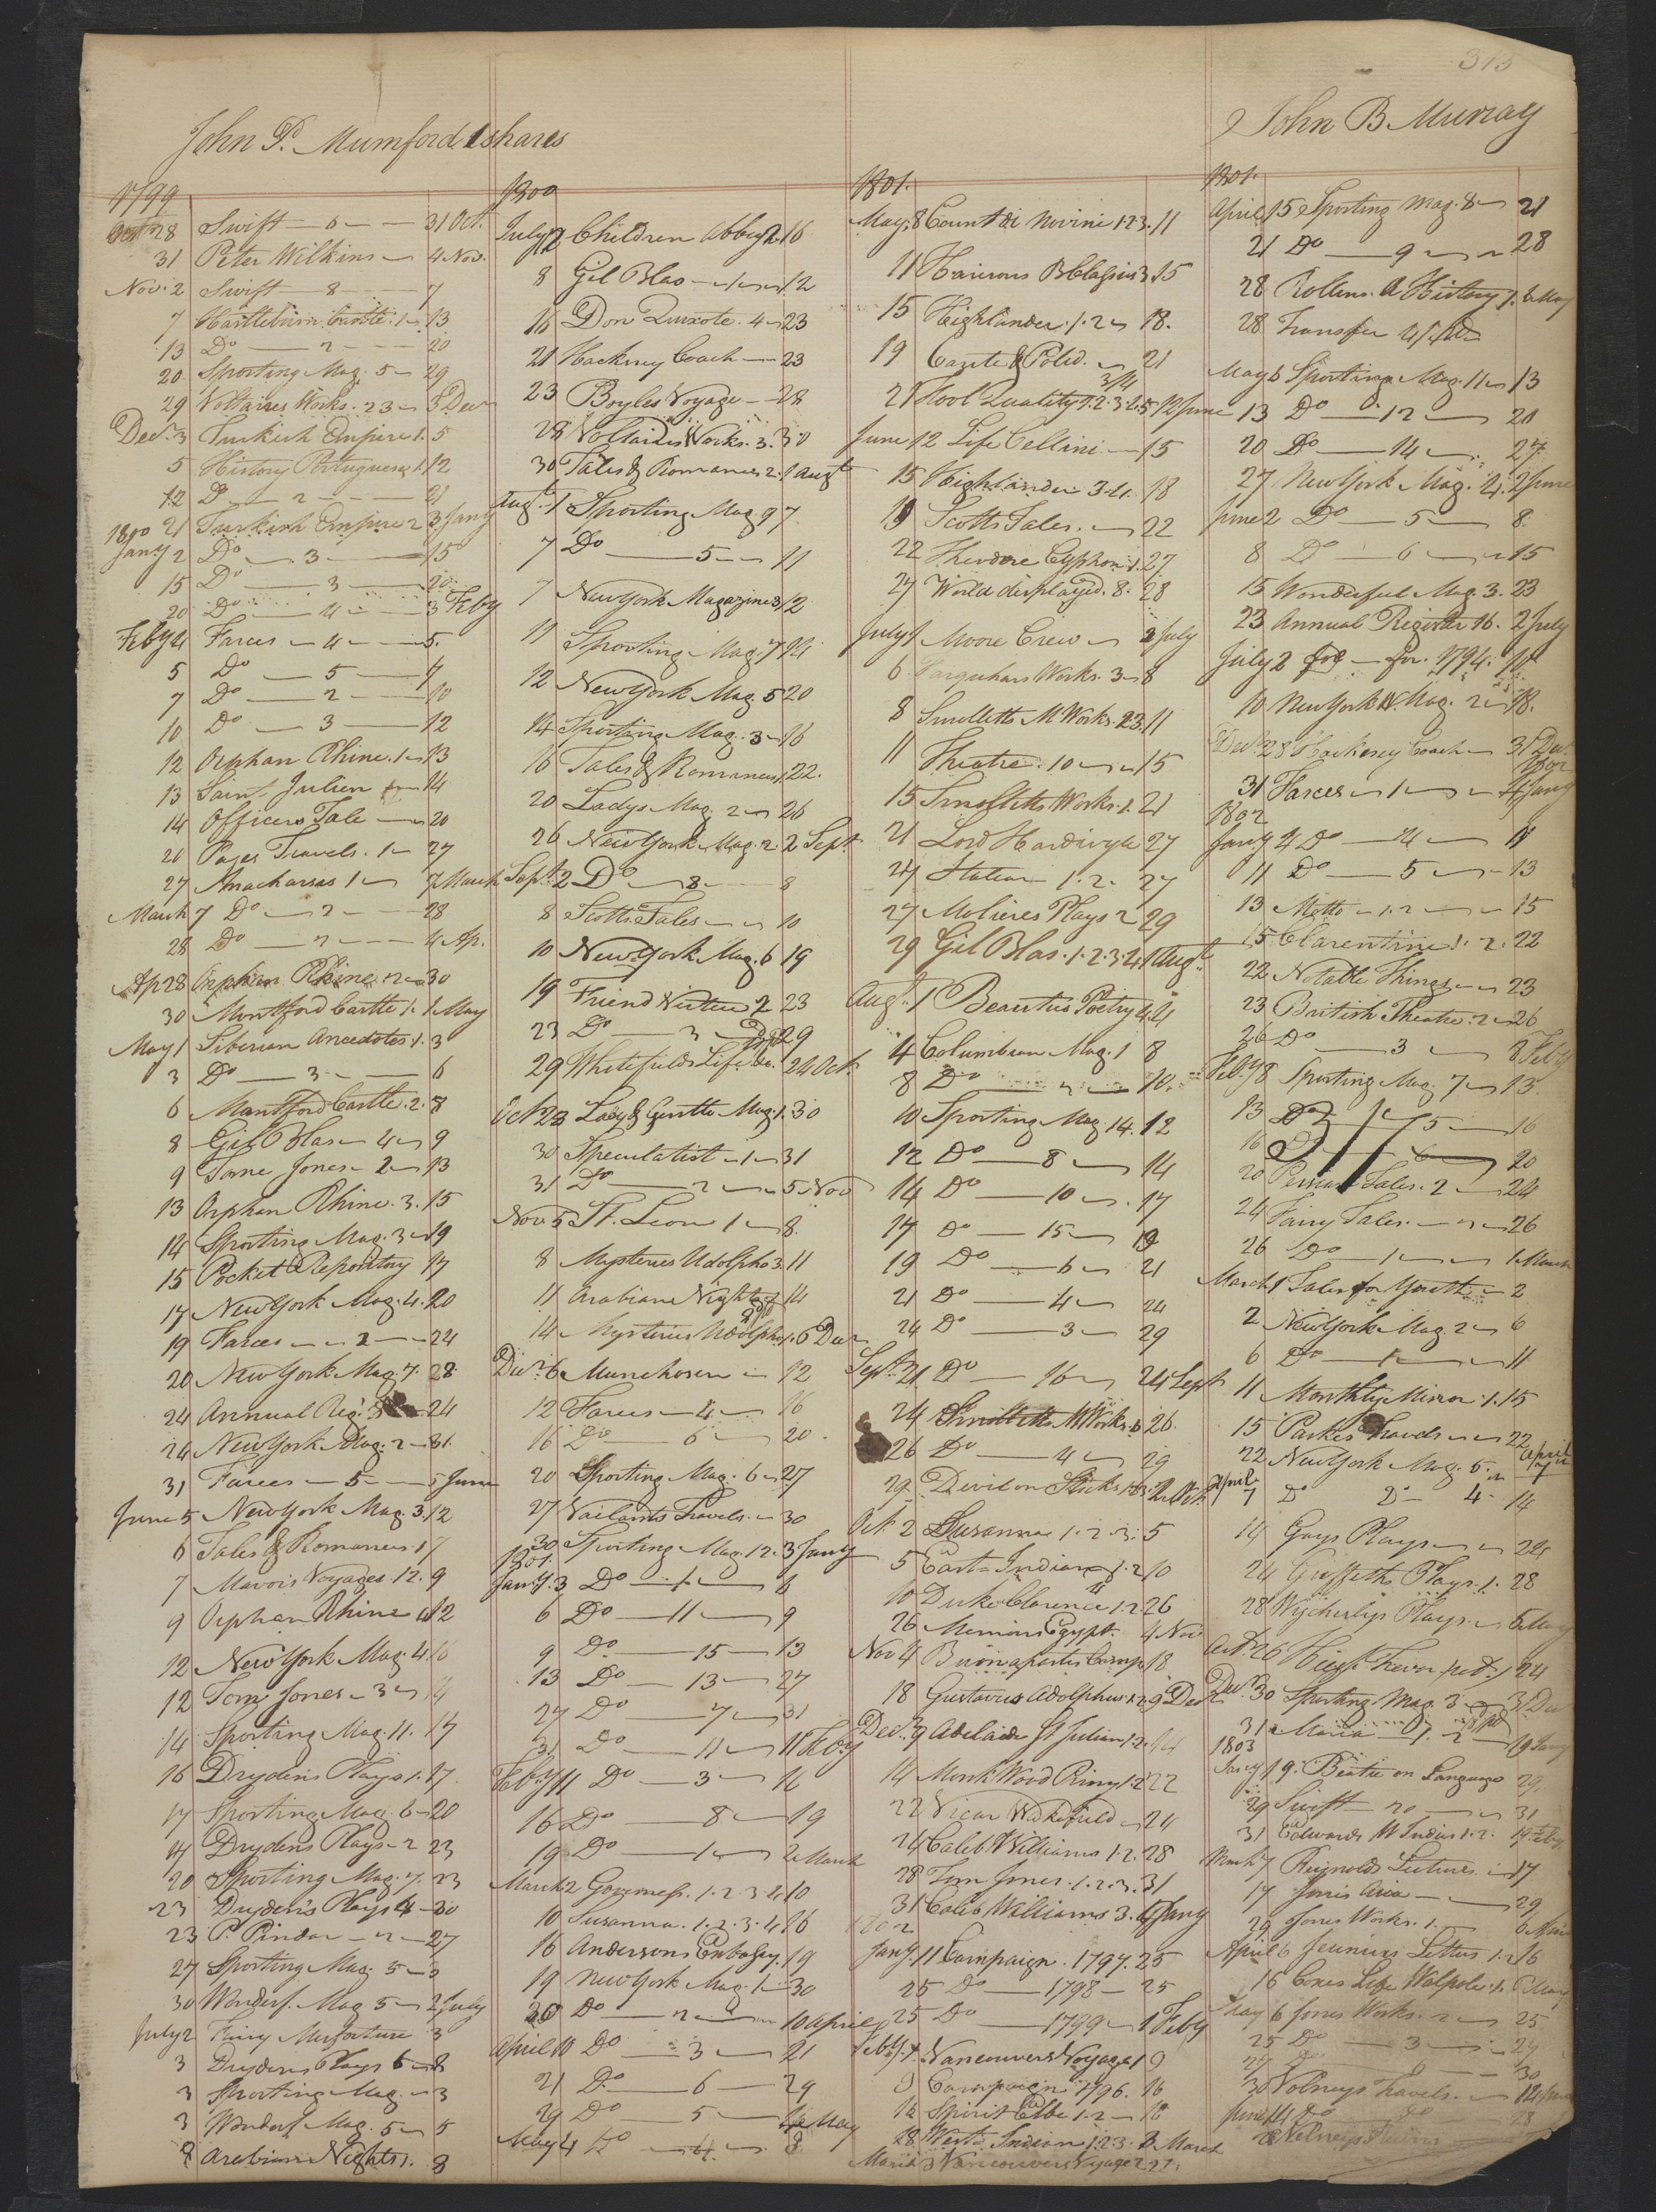 313
John P. Mumford 1 shares
John B Murray
1799
Oct 28 Swift — 6 — 31 Oct.
31 Peter Wilkins — 4 Nov.
Nov. 2 Swift — 8 — 7
7 Hartlebourn Castle. 1 — 13
13 Do — 2 — 20
20 Sporting Mag. 5 — 29
29 Voltaires Works. 23 — 3 Decr
Decr. 3 Turkish Empire 1. 5
5 History Portuguese 1. 12
12 Do — 2 — 21
21 Turkish Empire 2 3 Jany
1800
Jany 2 Do — 3 — 15
15 Do — 3 — 20
20 Do — 4 — 3 Feby
Feby 4 Farces — 4 — 5.
5 Do — 5 — 7
7 Do — 2 — 10
10 Do — 3 — 12
12 Orphan Rhine. 1 — 13
13 Saint Julien — 14
14 Officers Tale — 20
20 Pages Travels. 1 — 27
27 Anacharsis 1 — 7 March
March 7 Do — 2 — 28
28 Do — 2 — 4 Ap.
Ap 28 Orphan Rhine. 2 — 30
30 Montford Castle 1. 1 May
May 1 Siberian Anecdotes 1. 3
3 Do — 3 — 6
6 Montford Castle. 2. 8
8 Gil Blas — 4 — 9
9 Tome Jones — 2 — 13
13 Orphan Rhine. 3. 15
14 Sporting Mag. 3 — 19
15 Pocket Repository 17
17 New York Mag. 4. 20
19 Farces — 2 — 24
20 New York Mag. 7. 28
24 Annual Reg. 3 — 24
24 New York Mag. 2 — 31.
31 Farces — 5 — 5 June
June 5 New York Mag. 3. 12
6 Tales & Romances. 1 7
7 Mavors Voyages 12. 9
9 Orphan Rhine 4 12
12 New York Mag. 4 16
12 Tom Jones — 3 — 14
14 Sporting Mag. 11. 17
16 Drydens Plays 1. 17.
17 Sporting Mag. 6 — 20
17 Drydens Plays — 2 23
20 Sporting Mag. 7. 23
23 Dryden's Plays 4 — 30
23 P. Pindar — 2 — 27
27 Sporting Mag. 5 —
30 Wonderf. Mag 5 — 2 July
July 2 Fairy Misfortune 3
3 Drydens Plays 6 — 8
3 Sporting Mag. — 3
3 Wonderf Mag. 5 — 5
8 Arabian Nights 1. 8
1800
July 12 Children Abbey 2. 16
8 Gil Blas — 1 — 12
16 Don Quixote. 4 — 23
21 Hackney Coach — 23
23 Boyles Voyage — 28
28 Voltaires Works. 3. 30
30 Tales & Romances 2. 1 Augt
Augt. 1 Sporting Mag. 9 7.
7 Do — 5 — 11
7 New York Magazine 3 12
11 Sporting Mag. 7 14
12 New York Mag. 5 20
14 Sporting Mag. 3 — 16
16 Tales & Romances 1. 22.
20 Ladys Mag. 2 — 26
26 New York Mag. 2. 2 Sept.
Sept. 2 Do — 8 — 8
8 Scotts Tales — 10
10 New York Mag. 6 19
19 Friend Virtue 2 23
23 Do — 3 — 29
29 Whitefields Life &c. 24 Oct.
Oct 23 Lady & Gentle Mag. 1. 30
30 Speculatist — 1 — 31
31 Do — 2 — 5 Nov
Nov 5 St. Leon 1 — 8.
8 Mysteries Udolpho 3. 11
11 Arabian Nights 14
14 Mysteries Udolpho 1. 6 Decr
Decr. 6 Munchosen — 12
12 Farces — 4 — 16
16 Do — 6 — 20.
20 Sporting Mag. 6 — 27
27 Vailants Travels. — 30
30 Sporting Mag. 12. 3 Jany
1801.
Jany. 3 Do — 1 — 6
6 Do — 11 — 9
9 Do. — 15 — 13
13 Do — 13 — 27
27 Do — 7 — 31
31 Do — 11 — 11 Feby
Feby 11 Do — 3 — 16
16 Do — 8 — 19
19 Do — 1 — 2 March
March 2 Governess. 1. 2. 3. 4. 10
10 Susanna. 1. 2. 3. 4. 16
16 Andersons Embassy. 19
19 New York Mag. 1 — 30
30 Do — 2 — 10 April
April 10 Do — 3 — 21
21 Do — 6 — 29
29 Do — 5 — 4 May
May 4 Do — 4 — 8
1801.
May 8 Count di Novini 1. 2. 3. 11
11 Hairons B Clapins 3 15
15 Highlander. 1. 2 — 18.
19 Cazite & Polid. — 21
21 Fool Quality 1. 2. 3. 4. 5 12 June
June 12 Life Cellini — 15
15 Highlander 3. 4. 18
19 Scotts Tales. — 22
22 Theodore Cyphon 1. 27
27 World displayed. 8. 28
July 1 Moore Crew — 2 July
6 Farquhars Works. 3 — 8
8 Smolletts M Works. 2. 3. 11
11 Theatre. 10 — 15
15 Smolletts Works. 1. 21
21 Lord Hardivyle 27
27 Station 1. 2. 27
27 Molieres Plays 2 29
29 Gil Blas. 1. 2. 3. 4. 1 Augt
Augt. 1 Beauties Poetry 4. 4
4 Columbian Mag. 1 8
8 Do — 2 — 10.
10 Sporting Mag. 14. 12
12 Do — 8 — 14
14 Do — 10 — 17
17 Do — 15 — 19
19 Do — 6 — 21
21 Do — 4 — 24
24 Do — 3 — 29
Sept. 21. Do — 16 — 24 Sept
24 Smolletts M Works. 6 26.
26 Do — 4 — 29
29 Devil on Sticks 1. 2. 3. 2 Oct
Oct. 2 Susanna 1. 2. 3. 5
5 East Indian 1. 2 10
10 Duke Clarence 1. 2. 26
26 Memoirs Egypt. 4 Nov
Nov 4 Buonapartes Camp. 18
18 Gustavus Adolphus 1. 2. 9 Decr
Decr. 9 Adelaide St Julian 1. 2. 14
14 Monk Wood Priory 1. 2 22
22 Vicar Wakefield — 24
24 Caleb Williams 1. 2. 28
28 Tom Jones. 1. 2. 3. 31
31 Caleb Williams 3. 4 Jany
1802
Jany 11 Campaign. 1797. 25
25 Do — 1798 — 25
25 Do — 1799 — 1 Feby
Feby. 1. Vancouvers Voyage 1 9
9 Campaign 1796. 16
16 Spirit Elbe 1. 2 — 18
28 West Indian 1. 2. 3. 3 March
March 3 Vancouvers Voyage 2 27.
1801.
April 15 Sporting Mag. 8 — 21
21 Do — 9 — 28
28 Rollins A History 1. 6 May
28 Transfer
May 6 Sporting Mag. 11 — 13
13 Do — 12 — 20
20 Do — 14 — 27
27 New York Mag. 4. 2 June
June 2 Do — 5 — 8
8 Do — 6 — 15
15 Wonderful Mag. 3. 23
23 Annual Register 16. 2 July
July 2 for 1794. 10
10 New York Mag. 2 — 18.
Decr 28 Hackney Coach — 31 Decr
31 Farces — 1 — 4 Jany
1802
Jany 4 Do — 4 — 11
11 Do — 5 — 13
13 Motto — 1. 2 — 15
15 Clarentine 1. 2. 22
22 Notable Things — 23
23 British Theatre. 2 — 26
26 Do — 3 — 8 Feby
Feby 8 Sporting Mag. 7 — 13.
13 Do — 15 — 16
16 Do — 6 — 20
20 Persian Tales. 2 — 24
24 Fairy Tales. — 2 — 26
26 Do — 1 — 1 March
March 1 Tales for Youth — 2
2 New York Mag. 2 — 6
6 Do — 1 — 11
11 Monthly Mirror. 1. 15
15 Parkes Travels — 22
22 New York Mag. 6. — April 7
April 7 Do Do 4 — 14
14 Gays Plays — 24
24 Griffeths Plays. 1. 28
28 Wycherlys Plays. — 6 May
Oct. 26 Hugh Trevor 24
Decr. 30 Sporting Mag. 3 — 31 Dec
31 Maria — 2 — 19 Jany
1803
Jany 19. Beatie on Language 29.
29 Swift — 20 — 31
31 Edwards W Indies 1. 2. 19 Feby
March 7 Reynolds Lectures. — 17
17 Jones Asia — 29
29 Jones Works. 1. — 6 April
April 6 Jeunius Letters 1. 2 16
16 Coxes Life Walpole. 1. 6 May
May 6 Jones Works. 2 — 25
25 Do — 3 — 27
27 Do — 6 — 30
30 Volneys Travels. — 14 June
June 14 Do
Volneys Ruins